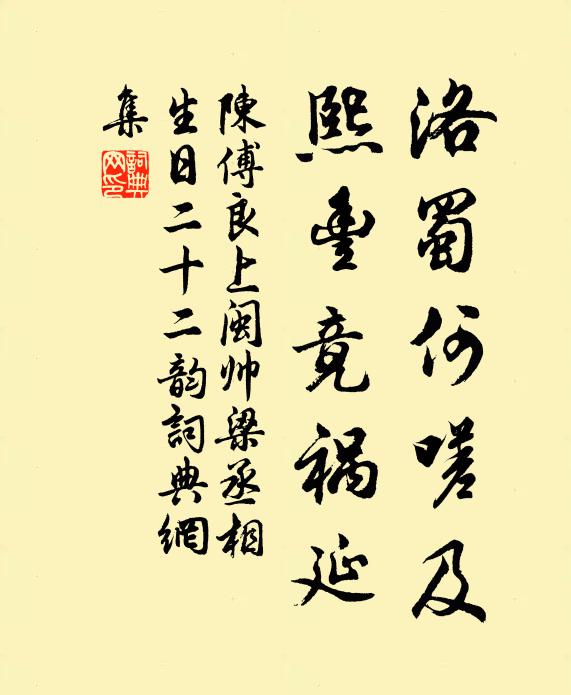 洛蜀何嗟及
熙豊竟禍延
陳傅良上閩帅梁丞相
生日二十二韵詞典網
集
詞典
网印